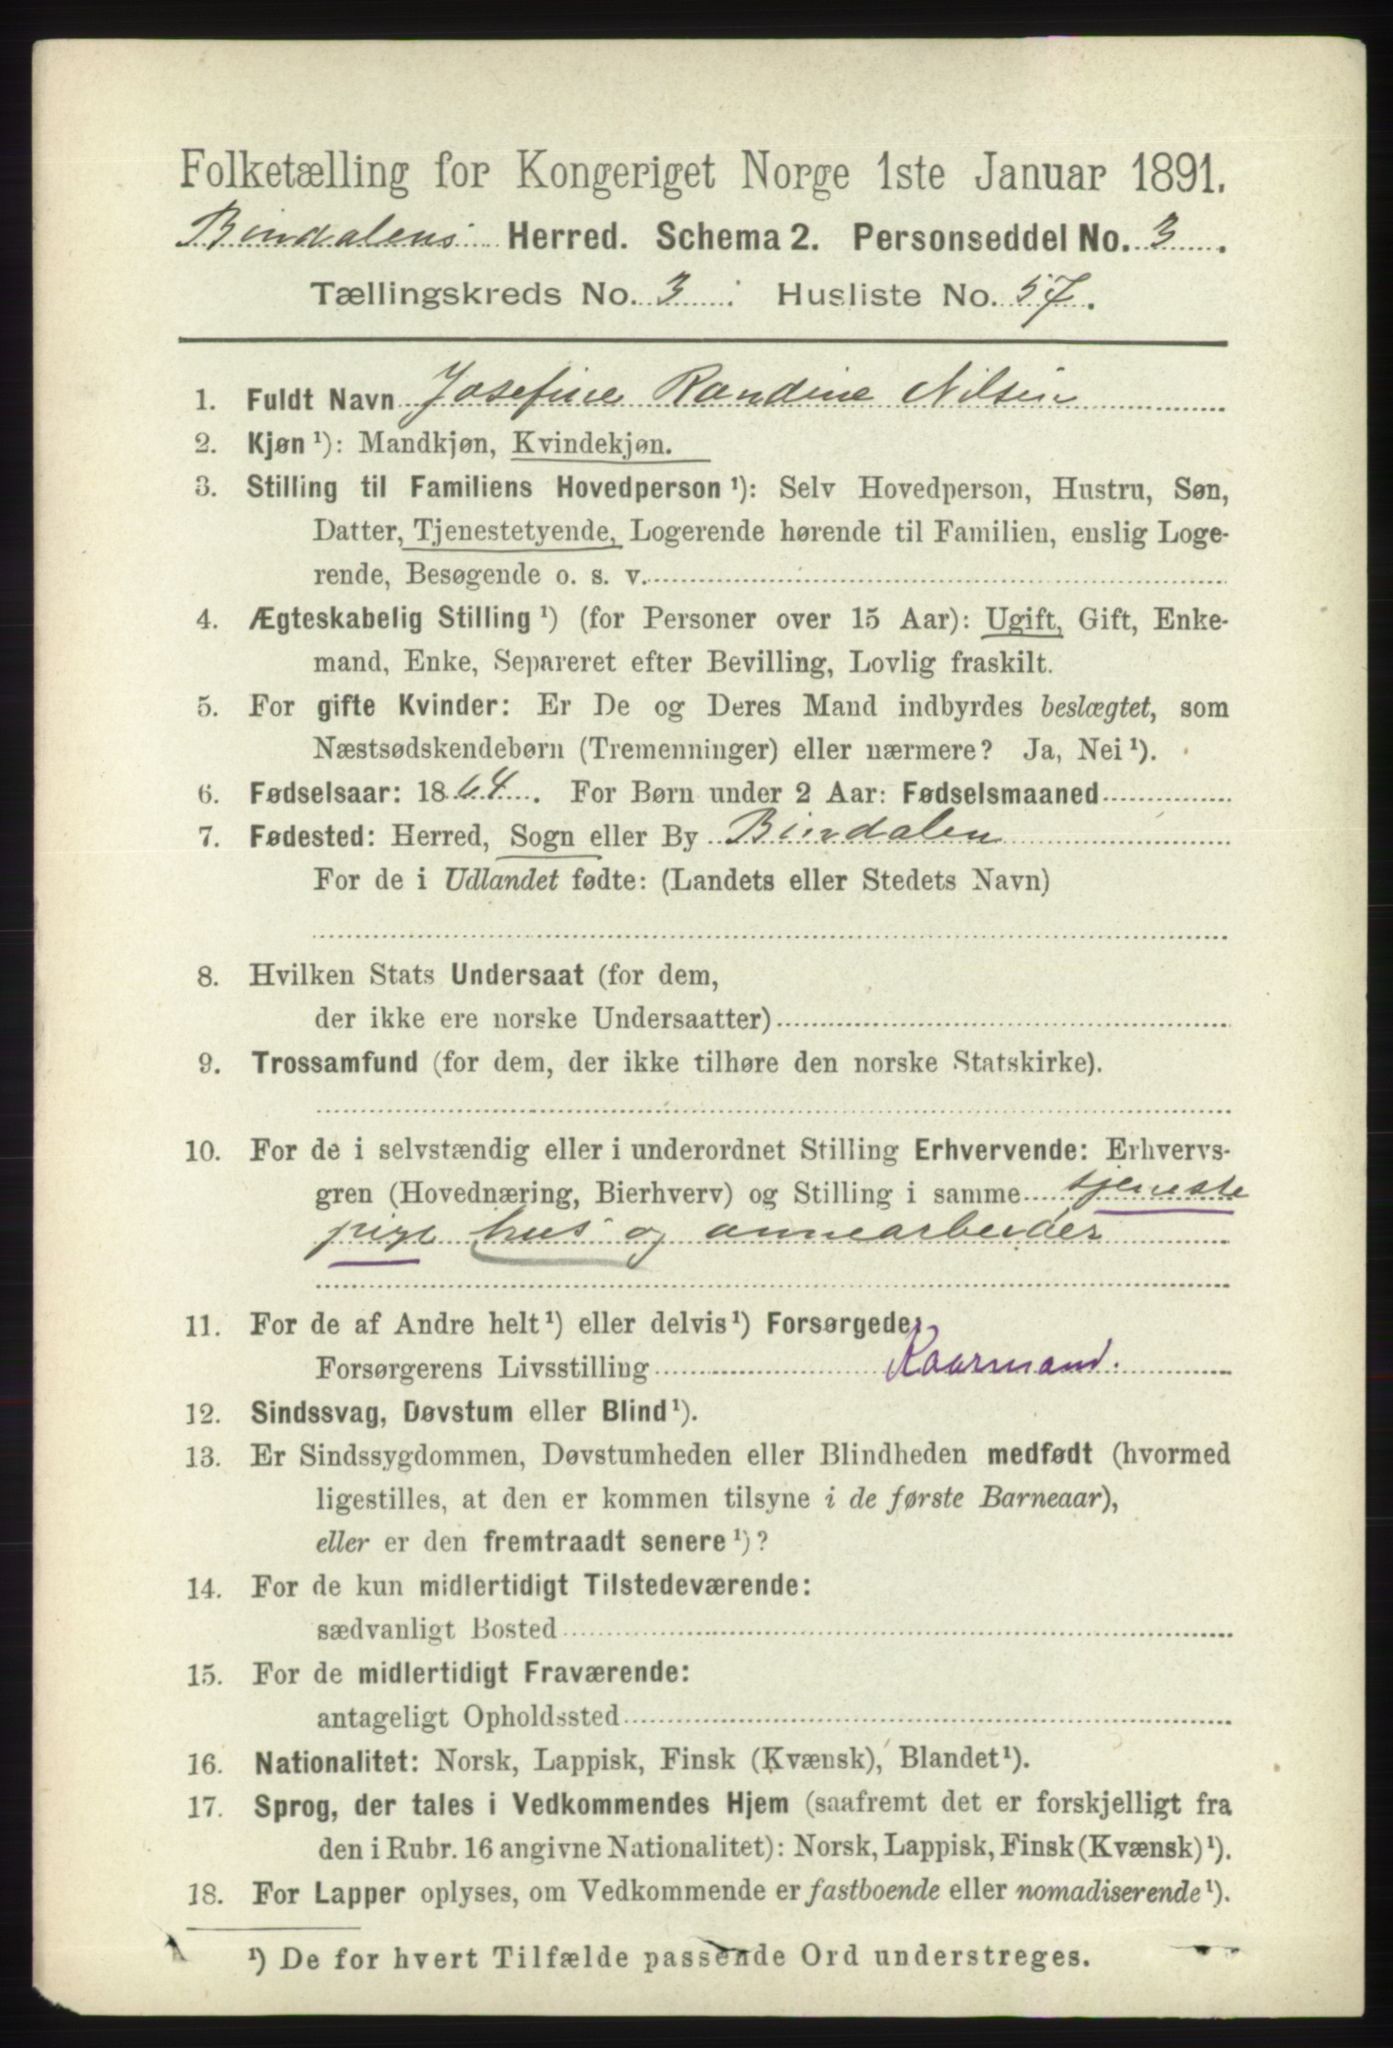 Folketælling for Kongeriget Norge 1ste Januar 1891.
Bindalens Herred. Schema 2. Personseddel No. 3.
Tællingskreds No. 3. Husliste No. 57.
1. Fuldt Navn Josefine Randine Nilsen
2. Kjøn ¹): Mandkjøn, Kvindekjøn.
3. Stilling til Familiens Hovedperson ¹): Selv Hovedperson, Hustru, Søn,
Datter, Tjenestetyende, Logerende hørende til Familien, enslig Loge-
rende, Besøgende o. s. v.
4. Ægteskabelig Stilling ¹) (for Personer over 15 Aar): Ugift, Gift, Enke-
mand, Enke, Separeret efter Bevilling, Lovlig fraskilt.
5. For gifte Kvinder: Er De og Deres Mand indbyrdes beslægtet, som
Næstsødskendebørn (Tremenninger) eller nærmere? Ja, Nei ¹).
6. Fødselsaar: 1864. For Børn under 2 Aar: Fødselsmaaned
7. Fødested: Herred, Sogn eller By Bindalen
For de i Udlandet fødte: (Landets eller Stedets Navn)
8. Hvilken Stats Undersaat (for dem,
der ikke ere norske Undersaatter)
9. Trossamfund (for dem, der ikke tilhøre den norske Statskirke).
10. For de i selvstændig eller i underordnet Stilling Erhvervende: Erhvervs-
gren (Hovednæring, Bierhverv) og Stilling i samme tjeneste
pige hus og
11. For de af Andre helt ¹) eller delvis ¹) Forsørgede:
Forsørgerens Livsstilling Kaarmand.
12. Sindssvag, Døvstum eller Blind ¹).
13. Er Sindssygdommen, Døvstumheden eller Blindheden medfødt (hvormed
ligestilles, at den er kommen tilsyne i de første Barneaar),
eller er den fremtraadt senere ¹)?
14. For de kun midlertidigt Tilstedeværende:
sædvanligt Bosted
15. For de midlertidigt Fraværende:
antageligt Opholdssted
16. Nationalitet: Norsk, Lappisk, Finsk (Kvænsk), Blandet ¹).
17. Sprog, der tales i Vedkommendes Hjem (saafremt det er forskjelligt fra
den i Rubr. 16 angivne Nationalitet): Norsk, Lappisk, Finsk (Kvænsk) ¹).
18. For Lapper oplyses, om Vedkommende er fastboende eller nomadiserende ¹).
¹) De for hvert Tilfælde passende Ord understreges.